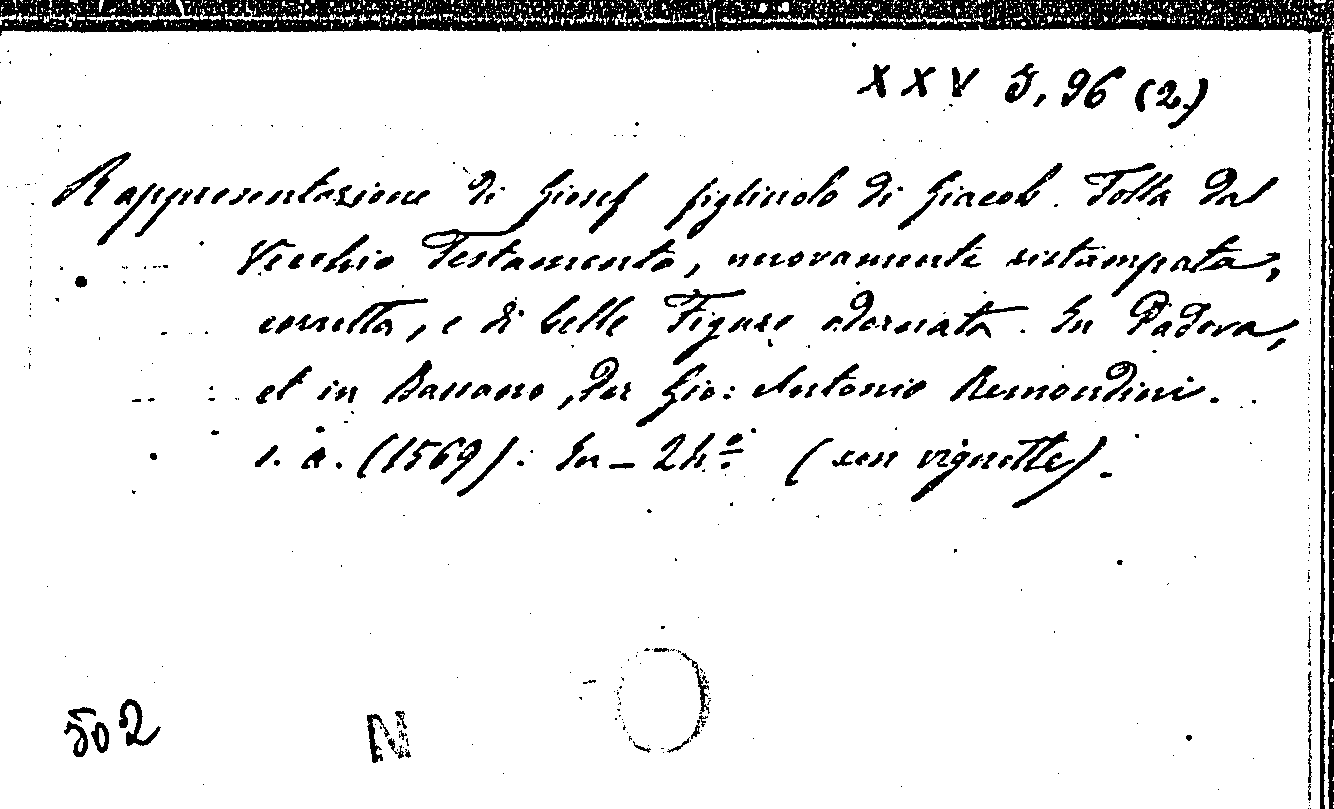 XXV J, 96 (2.)
Rappresentazione di Giosef figliuolo di Giacob. Tolta dal
Vecchio Testamento, nuovamente ristampata,
corretta, e di belle Figure adornata. In Padova,
et in Bassano, Per Gio: Antonio Remondini.
s. a. (1569). In-24.º (con vignette).
502
N